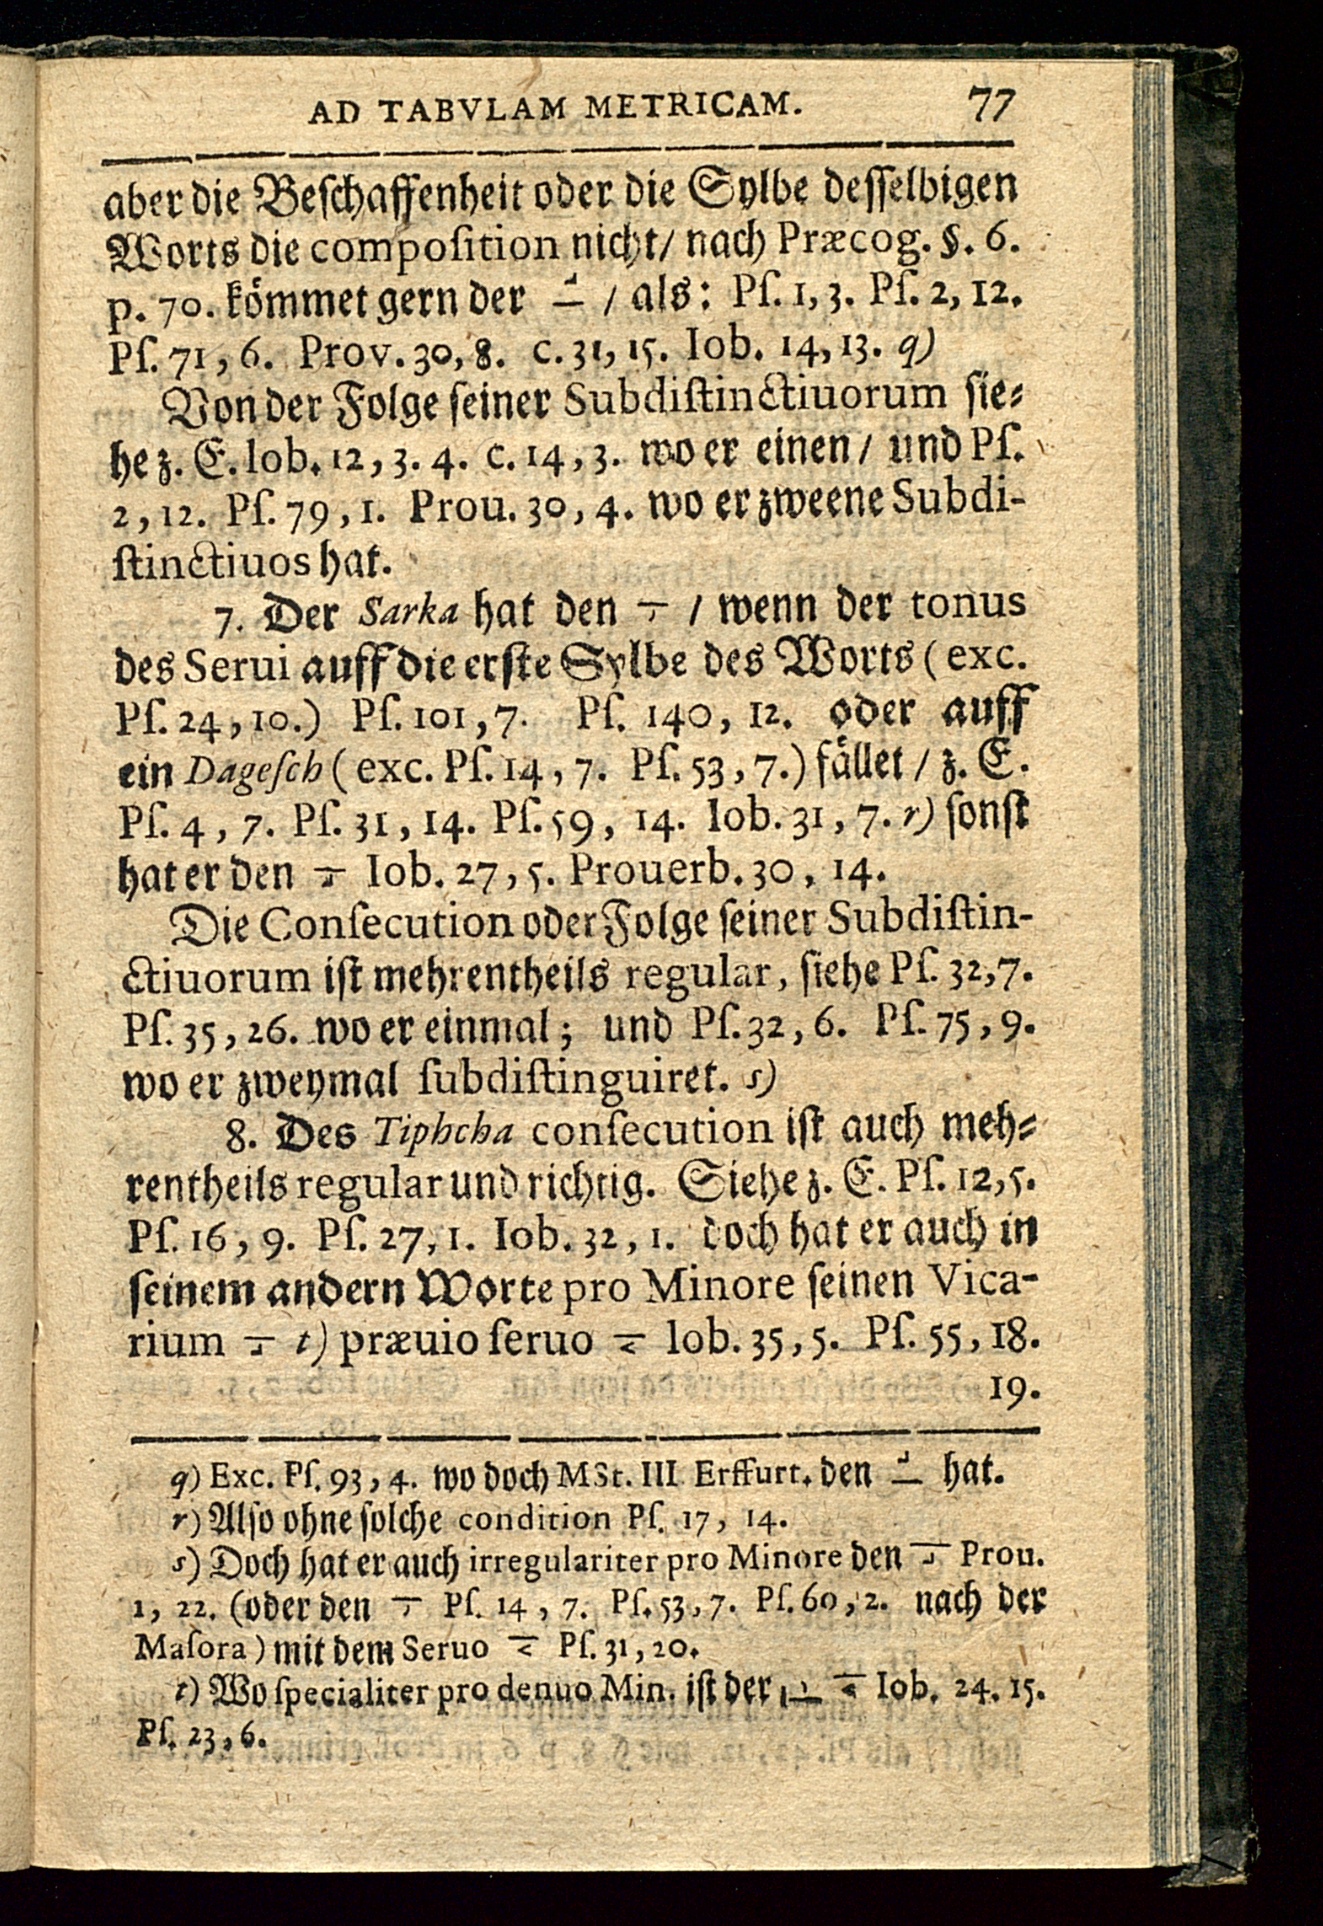 AD TABVLAM METRICAM. 77
aber die Beſchaffenheit oder die Sylbe deſſelbigen
Worts die compoſition nicht/ nach Præcog. §. 6.
p. 70. kömmet gern der / als: Pſ. 1, 3. Pſ. 2, 12.
Pſ. 71, 6. Prov. 30, 8. c. 31, 15. Iob. 14, 13. q)
Von der Folge ſeiner Subdiſtinctiuorum ſie⸗
he z. E. Iob. 12, 3. 4. c. 14, 3. wo er einen / und Pſ.
2, 12. Pſ. 79, 1. Prou. 30, 4. wo er zweene Subdi-
ſtinctiuos hat.
7. Der Sarka hat den / wenn der tonus
des Serui auff die erſte Sylbe des Worts (exc.
Pſ. 24, 10.) Pſ. 101, 7. Pſ. 140, 12. oder auff
ein Dageſch (exc. Pſ. 14, 7. Pſ. 53, 7.) fället / z. E.
Pſ. 4, 7. Pſ. 31, 14. Pſ. 59, 14. Iob. 31, 7. r) ſonſt
hat er den Iob. 27, 5. Prouerb. 30, 14.
Die Conſecution oder Folge ſeiner Subdiſtin-
ctiuorum iſt mehrentheils regular, ſiehe Pſ. 32, 7.
Pſ. 35, 26. wo er einmal; und Pſ. 32, 6. Pſ. 75, 9.
wo er zweymal ſubdiſtinguiret. s)
8. Des Tiphcha conſecution iſt auch meh⸗
rentheils regular und richtig. Siehe z. E. Pſ. 12, 5.
Pſ. 16, 9. Pſ. 27, 1. Iob. 32, 1. doch hat er auch in
ſeinem andern Worte pro Minore ſeinen Vica-
rium t) præuio ſeruo Iob. 35, 5. Pſ. 55, 18.
19.
q) Exc. Pſ. 93, 4. wo doch MSt. III Erffurt. den hat.
r) Alſo ohne ſolche condition Pſ. 17, 14.
s) Doch hat er auch irregulariter pro Minore den Prou.
1, 22. (oder den Pſ. 14, 7. Pſ. 53, 7. Pſ. 60, 2. nach der
Maſora) mit dem Seruo Pſ. 31, 20.
t) Wo ſpecialiter pro denuo Min. iſt der Iob. 24. 15.
Pſ. 23, 6.